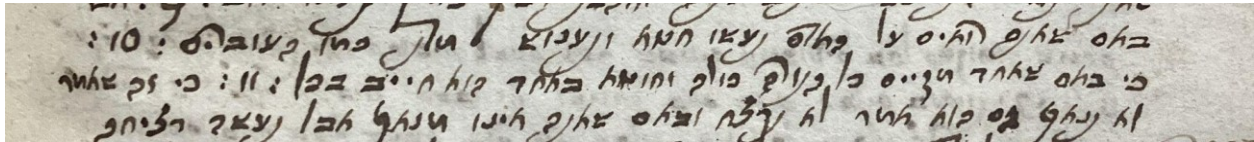 באם שאתם רואים על נעשו חטא ונענוש כמו העוברים : 10 :
כי באם שאחד מקיים כל התורה כולה וחוטא באחד הוא חייב בכל : 11 : כי זה שאמר
לא תנאף גם הוא אמר לא תרצח ובאם שאתה אינו מנאף אבל נעשה רציחה